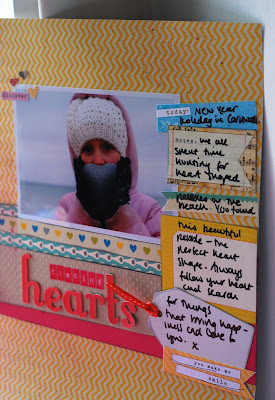 discover
today: New year
holiday in Cornwall
notes: we all
spent time
hunting for
heart shaped
pebbles on the
beach. You found
this beautiful
pebble - the
perfect heart
shape. Always
follow your heart
and search
for things
that bring happ-
iness and love to
you. x
finding
hearts
you make me
smile